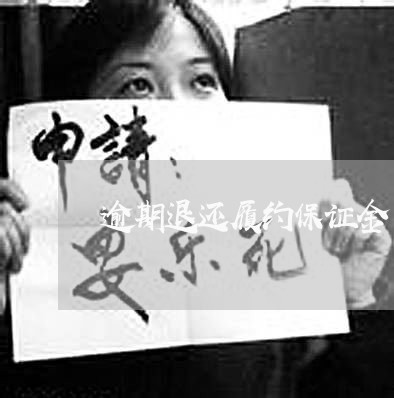 申請：
逾期退还履约保证金
安乐死